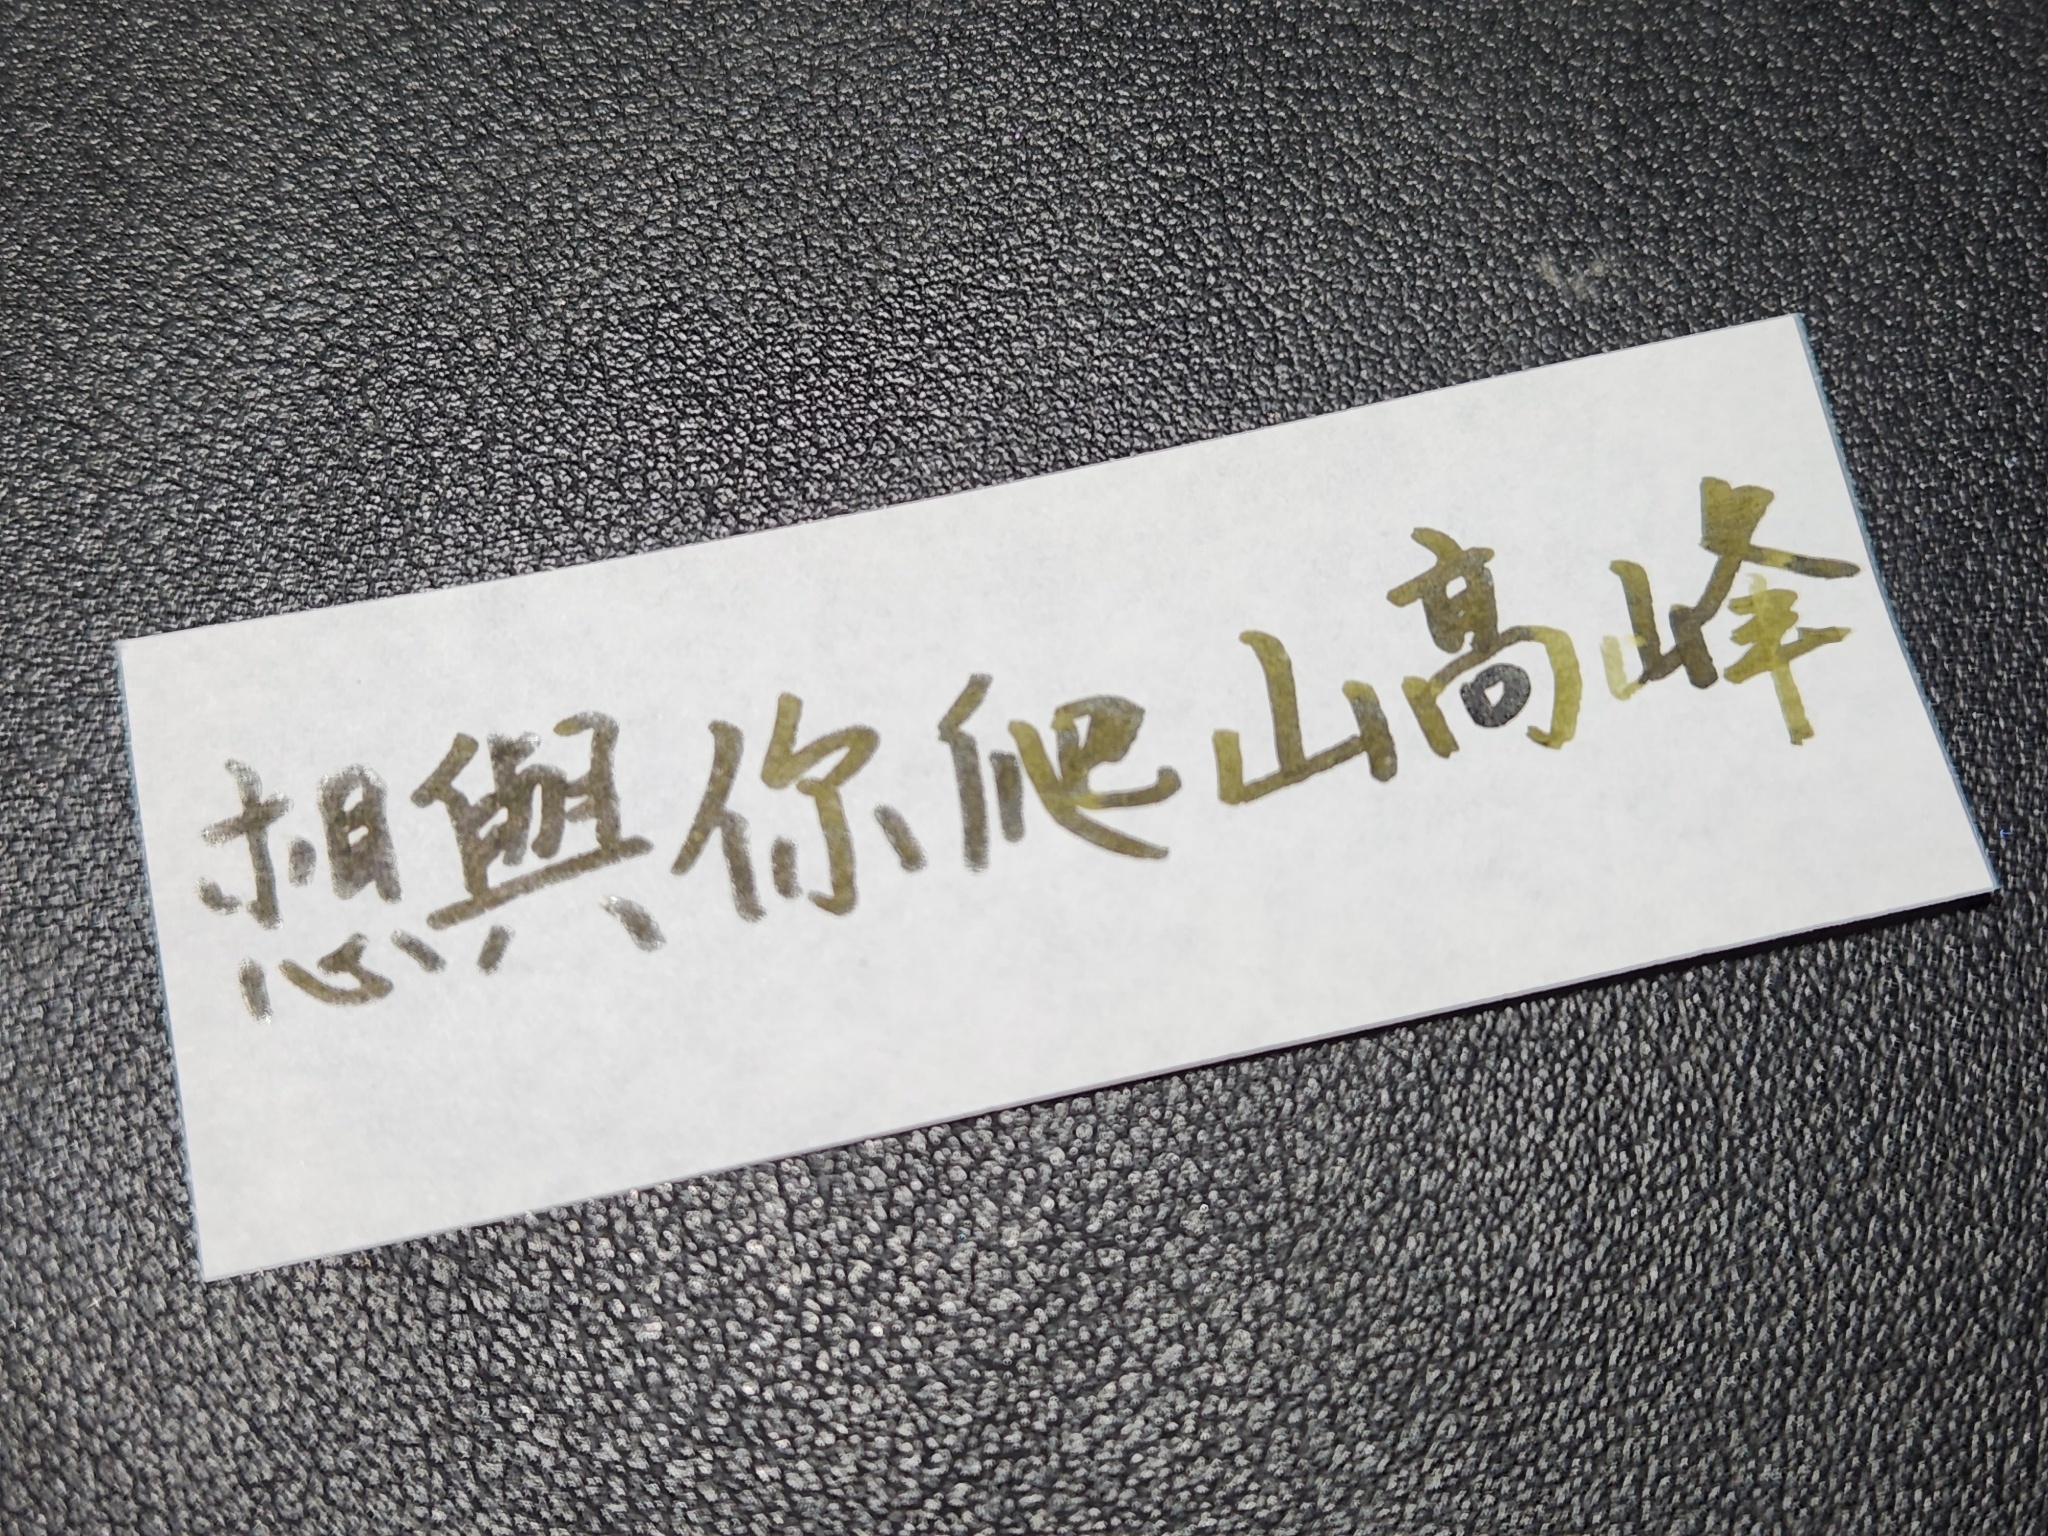 想與你爬山高峰